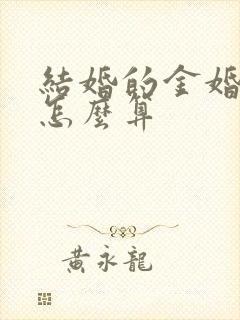 結婚的金婚
怎麼算
黃永龍